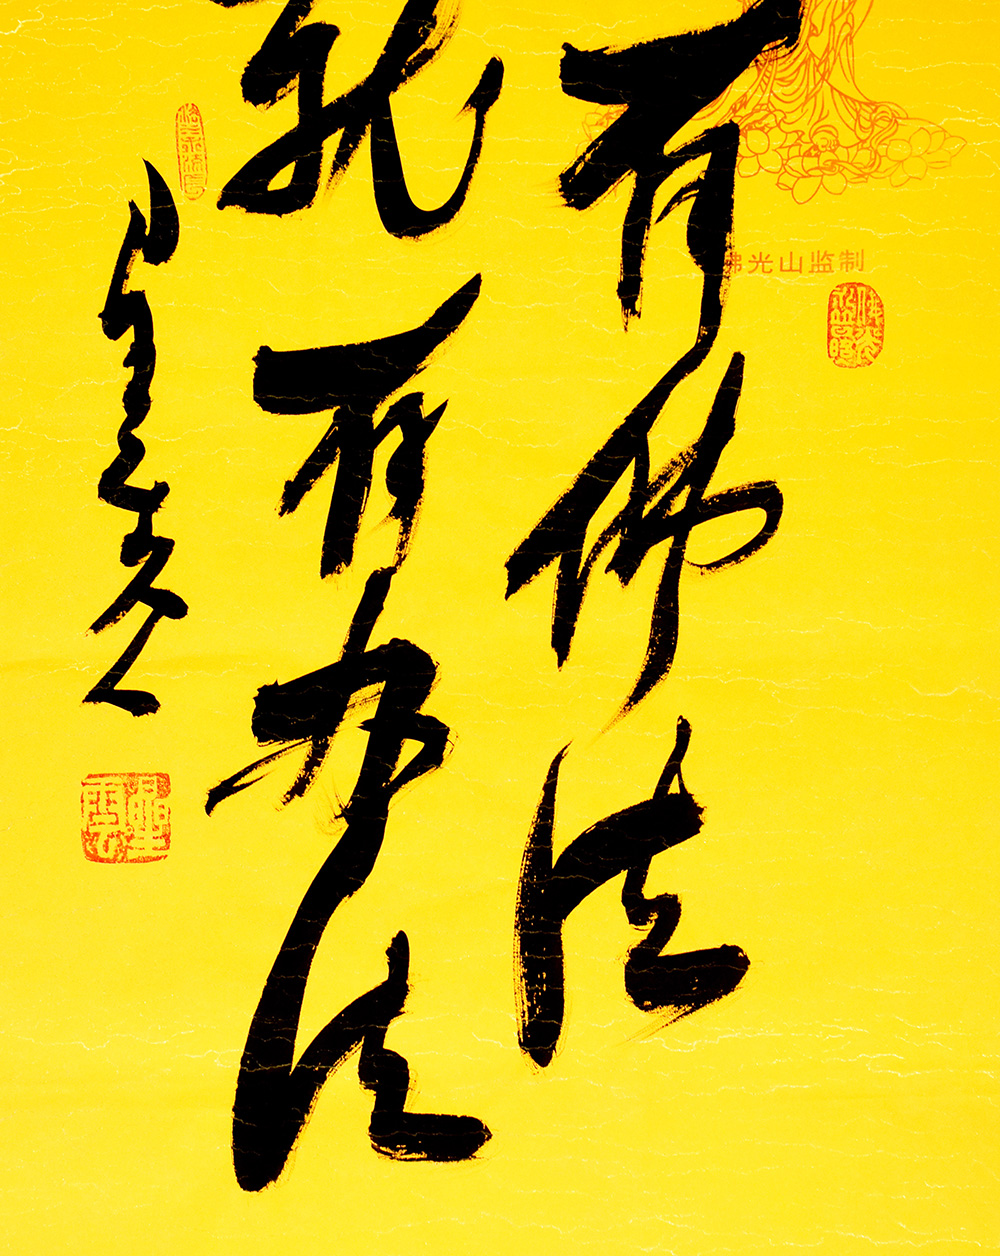 佛光山监制
有佛法
就有办法
星雲